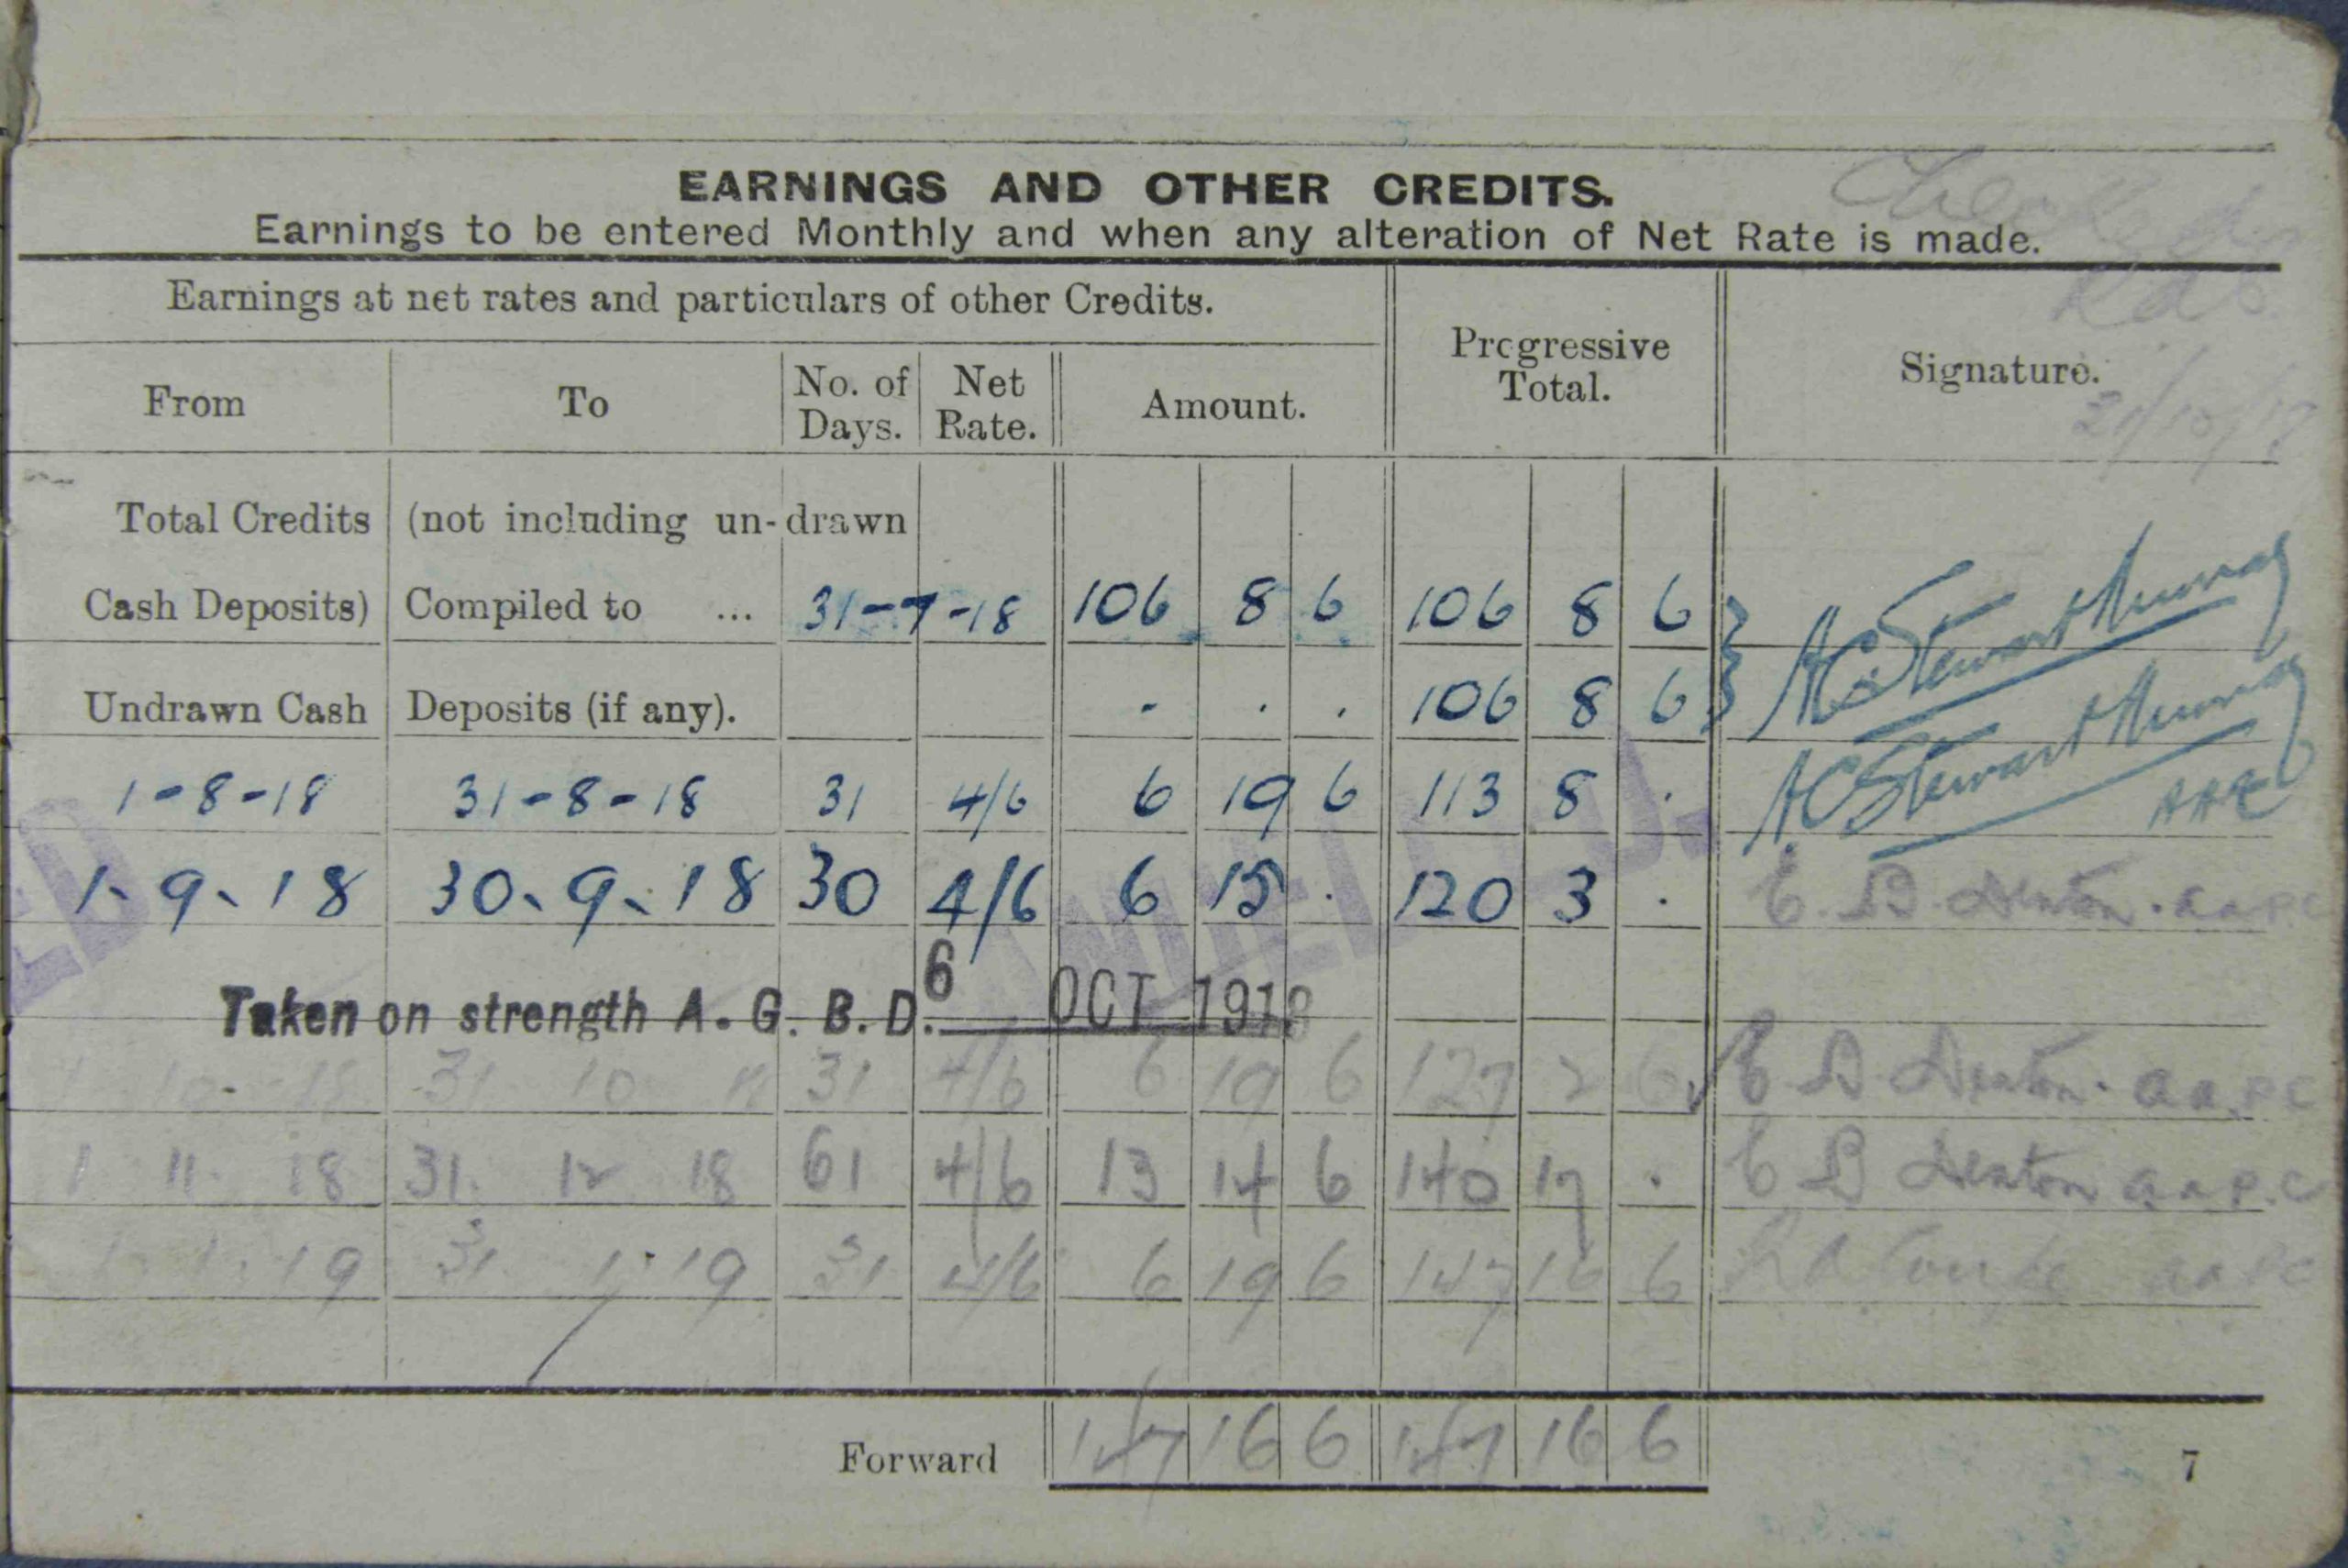 Checked
EARNINGS AND OTHER CREDITS.
Earnings to be entered Monthly and when any alteration of Net Rate is made.
Earnings at net rates and particulars of other Credits.
Progressive Total.
Signature.
From To No. of Days. Net Rate. Amount.
Total Credits (not including un-drawn
Cash Deposits) Compiled to ... 31-7-18 106 8 6 106 8 6 A C Stewart Murray
Undrawn Cash Deposits (if any). . . . 106 8 6
1-8-18 31-8-18 31 4/6 6 19 6 113 8 . A C Stewart Murray
1.9.18 30.9.18 30 4/6 6 15 . 120 3 . E B Denton. AAPC
Taken on strength A.G.B.D. 6 OCT 1918
1 10 18 31 10 18 31 4/6 6 19 6 127 2 6 E B Denton. AAPC
1 11 18 31 12 18 61 4/6 13 14 6 140 17 . E B Denton AAPC
1 1 19 31 1 19 31 4/6 6 19 6 147 16 6 AAPC
Forward 147 16 6 147 16 6
7